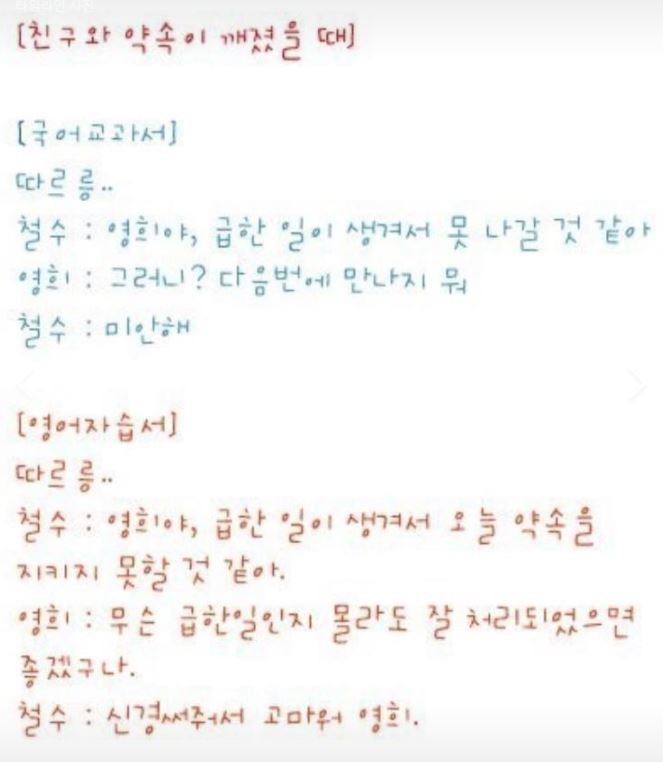 [친구와 약속이 깨졌을 때]
[국어교과서]
따르릉..
철수 : 영희야, 급한 일이 생겨서 못 나갈 것 같아
영희 : 그러니? 다음번에 만나지 뭐
철수 : 미안해
[영어자습서]
따르릉..
철수 : 영희야, 급한 일이 생겨서 오늘 약속을
지키지 못할 것 같아.
영희 : 무슨 급한일인지 몰라도 잘 처리되었으면
좋겠구나.
철수 : 신경써줘서 고마워 영희.